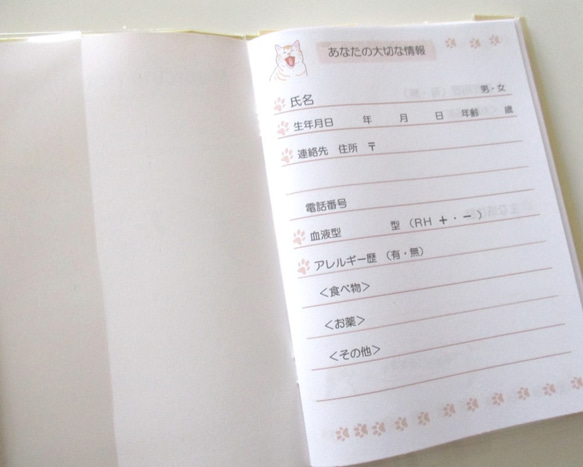 あなたの大切な情報
氏名 男・女
生年月日 年 月 日 年齢 歳
連絡先 住所 〒
電話番号
血液型 型 (RH ＋・－)
アレルギー歴 (有・無)
＜食べ物＞
＜お薬＞
＜その他＞